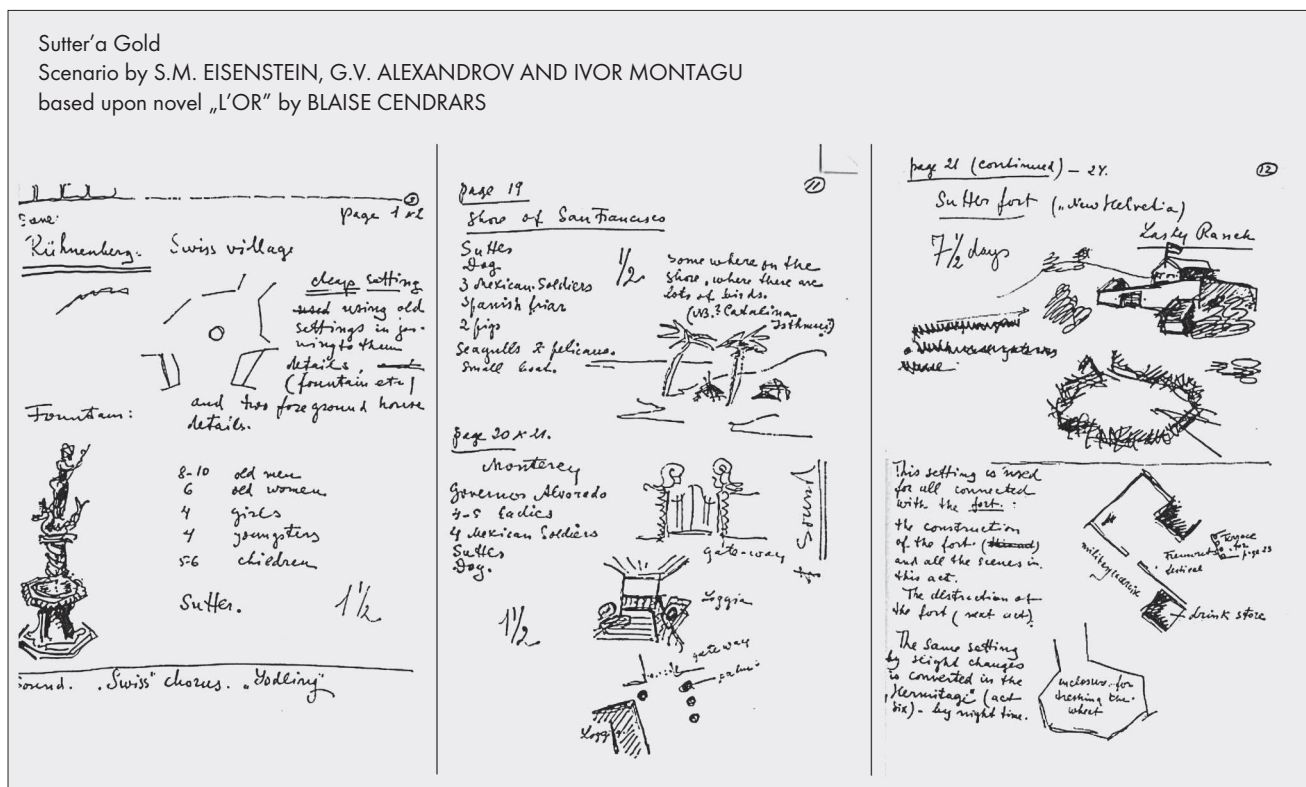 Sutter'a Gold
Scenario by S.M. EISENSTEIN, G.V. ALEXANDROV AND IVOR MONTAGU
based upon novel „L'OR” by BLAISE CENDRARS
page 1 x 2
Rühnenberg.
Swiss village
cheap setting
using old
settings in joi-
ning to them
details,
(fountain etc)
and two foreground house
details.
Fountain:
8-10 old men
6 old women
4 girls
4 youngsters
5-6 children
Sutter.
1 1/2
Sound. „Swiss" chorus. „Yodling"
11
page 19
Shore of San Francisco
Sutter
Dog
3 Mexican Soldiers
Spanish friar
2 pigs
Seagulls & pelicans.
Small boat.
1/2
Some where on the
shore, where there are
lots of birds.
(NB. ? Catalina
Isthmus?)
page 20 x 21.
Monterey
Governor Alvorado
4-5 Ladies
4 Mexican Soldiers
Sutter
Dog.
1 1/2
gate-way
Sound
Loggia
gateway
palms
Loggia
12
page 21 (continued) – 24.
Sutter fort („New Helvetia)
Lasky Ranch
7 1/2 days
This setting is used
for all connected
with the fort. :
the construction
of the fort.
and all the scenes in
this act.
The distruction of
the fort (next act)
The same setting
by slight changes
is converted in the
„Hermitage" (act
six) – by night time.
military exercise
Terrace
for
page 23
festival
drink store
inclosure for
treshing the
wheat